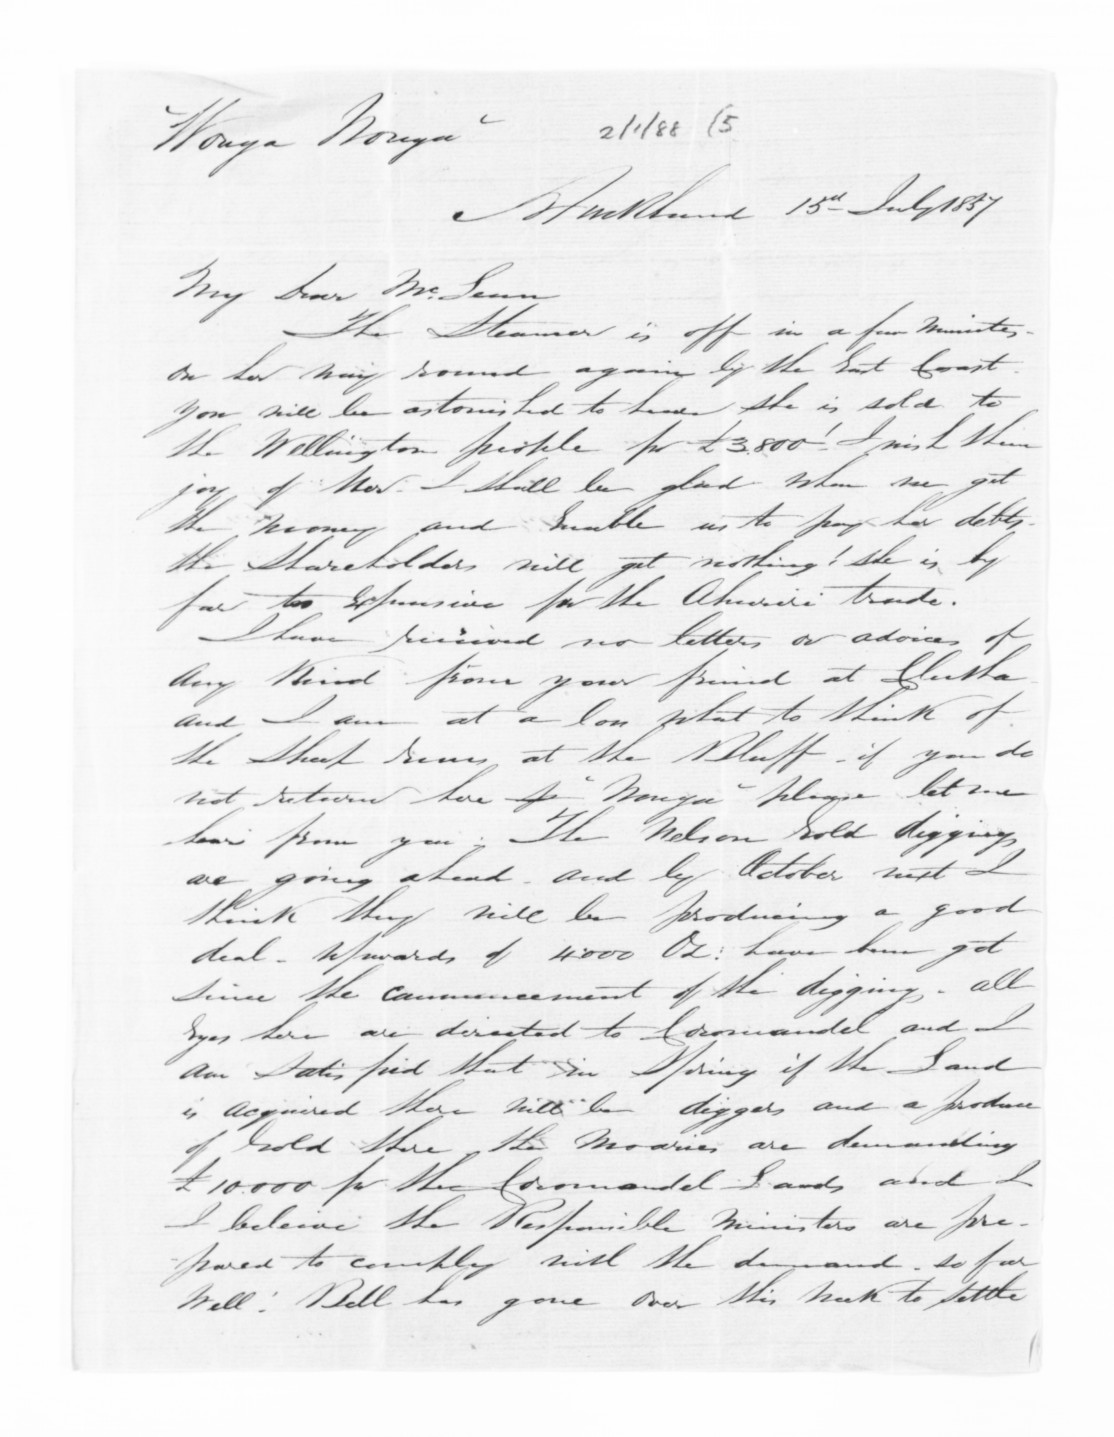 "Wonga Wonga"
2/1/88 (5
Auckland 15th July 1857
My dear McLean
The Steamer is off in a few minutes -
on her way round again by the East Coast.
you will be astonished to hear she is sold to
the Wellington people for £3.800! I wish them
joy of her. I shall be glad when we get
the money and Enable us to pay her debts.
the Shareholders will get nothing! she is by
far too Expensive for the Ahuriri trade.
I have received no letters or advices of
any Kind from your friend at Clutha
and I am at a loss what to think of
the Sheep runs at the Bluff - if you do
not return here pr "Wonga" please let me
hear from you. The Nelson Gold diggings
are going ahead - and by October next I
think they will be producing a good
deal - upwards of 4000 Oz: have been got
since the commencement of the digging - all
Eyes here are directed to Coromandel and I
am satisfied that in Spring if the Land
is acquired there will be diggers and a produce
of Gold there, the Maories are demanding
£10.000 for the Coromandel Lands and I
I beleive the Responsible Ministers are pre-
pared to comply with the demand. so far
Well! Bell has gone over this week to settle